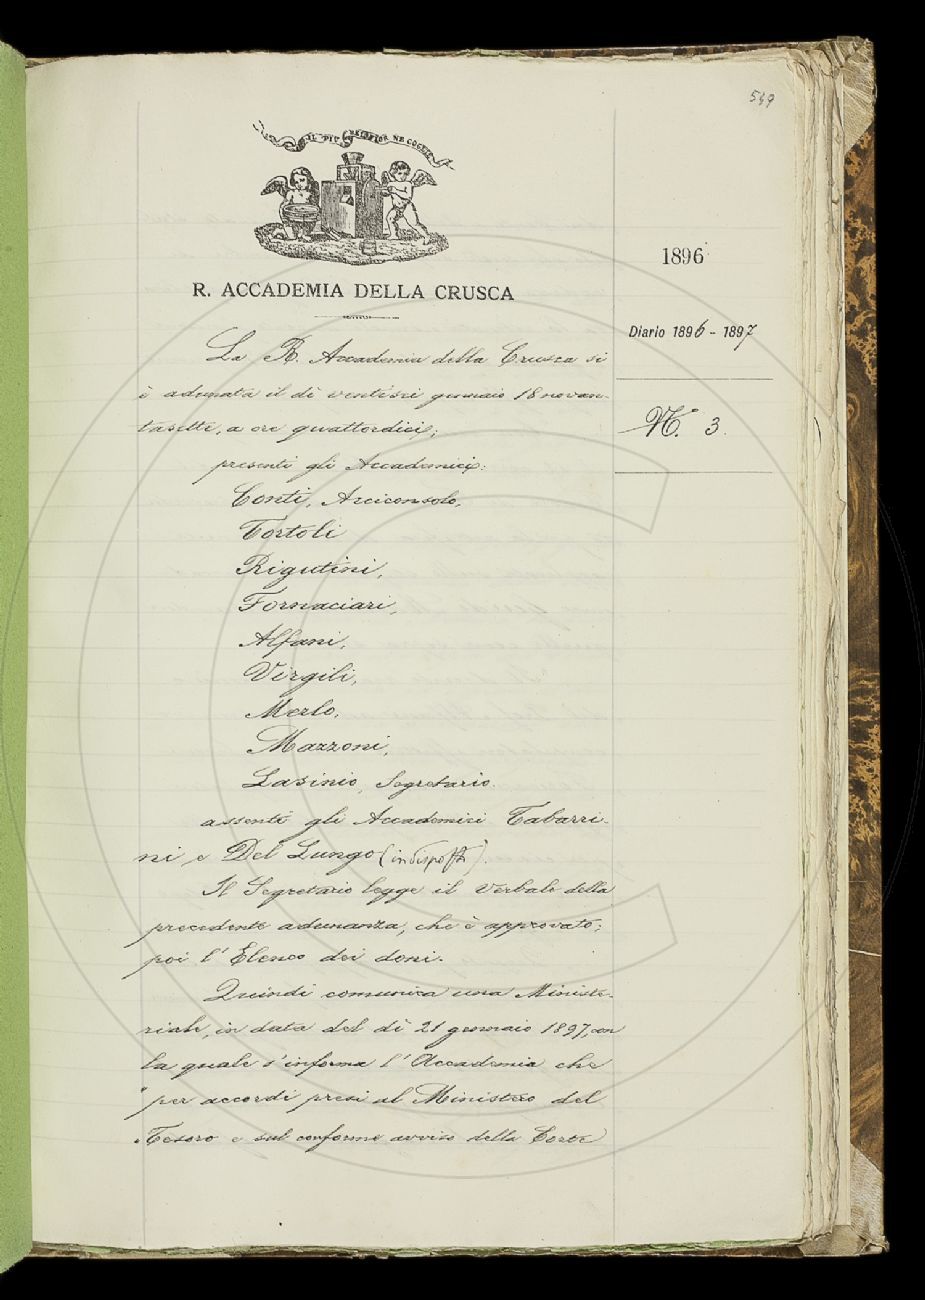 549
IL PIÙ BEL FIOR NE COGLIE
R. ACCADEMIA DELLA CRUSCA
1896
Diario 1896 - 1897
N. 3.
La R. Accademia della Crusca si
è adunata il dì ventisei gennaio 18novan-
tasette, a ore quattordici;
presenti gli Accademici:
Conti, Arciconsolo,
Tortoli
Rigutini,
Fornaciari,
Alfani,
Virgili,
Merlo,
Mazzoni,
Lasinio, Segretario.
assenti gli Accademici Tabarri-
ni e Del Lungo (indisposti).
Il Segretario legge il Verbale della
precedente adunanza, che è approvato;
poi l'Elenco dei doni.
Quindi comunica una Ministe-
riale, in data del dì 21 gennaio 1897, con
la quale s'informa l'Accademia che
"per accordi presi al Ministero del
Tesoro e sul conforme avviso della Corte